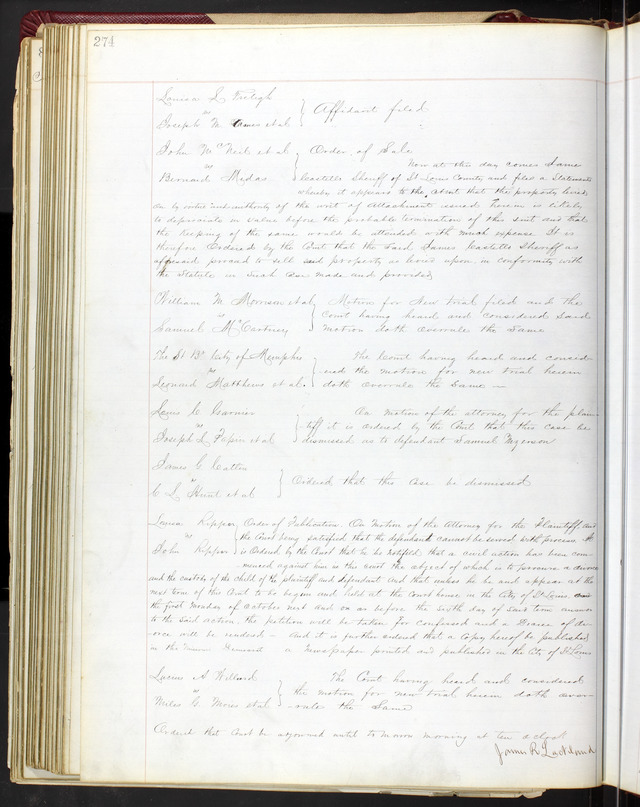 274
Louisa L
vs
Joseph M et al } Affidavit filed
John Mc et al } Order of Sale
vs
Now at this day comes James
Bernard Castello Sheriff of St Louis County and files a Statement
whereby it appears to the Court that the property levied
on by virtue and authority of the writ of Attachment issued herein is likely
to depreciate in value before the probable termination of this suit and that
the keeping of the same would be attended with much expense It is
therefore Ordered by the Court that the said James Castello Sheriff as
aforesaid proceed to sell said property so levied upon in conformity with
the Statute in such case made and provided
William M Morrison et al } Motion for New trial filed and the
vs Court having heard and considered said
Samuel McCartney motion doth overrule the Same
The St Bt City of Memphis } The Court having heard and consid-
vs ered the motion for new trial herein
Leonard Matthews et al doth overrule the Same
Louis C Garnier } On motion of the attorney for the plain-
vs tiff it is ordered by the Court that this case be
Joseph L Papin et al dismissed as to defendant Samuel
James C
vs } Ordered that this Case be dismissed
C L Hunt et al
Louisa Rippen Order of Publication. On Motion of the Attorney for the Plaintiff and
vs the Court being satisfied that the defendant cannot be served with process It
John Rippen is Ordered by the Court that he be notified that a civil action has been com-
menced against him in this court the object of which is to procure a divorce
and the custody of the child of the plaintiff and defendant And that unless he be and appear at the
next term of this Court to be begun and held at the Court house in the City of St Louis on
the first Monday of October next and on or before the sixth day of said term answer
to the said action. the petition will be taken for confessed and a Decree of di-
vorce will be rendered – And it is further ordered that a Copy hereof be published
in the a Newspaper printed and published in the City of St Louis
Lucius A Willard } The Court having heard and considered
vs the motion for new trial herein doth over-
Miles G Moies et al rule the Same
Ordered that Court be adjourned until to morrow morning at ten o'clock
James R Lackland